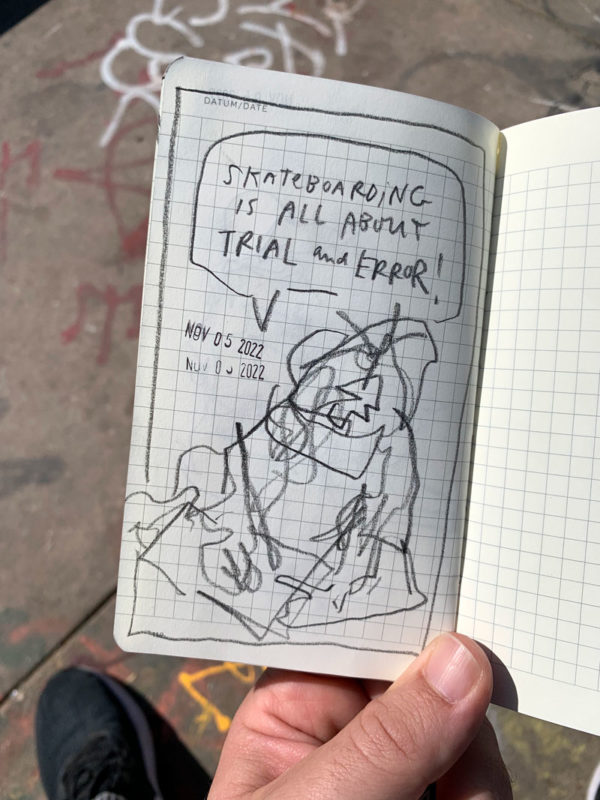 DATUM/DATE
SKATEBOARDING
IS ALL ABOUT
TRIAL and ERROR!
NOV 05 2022
NOV 05 2022